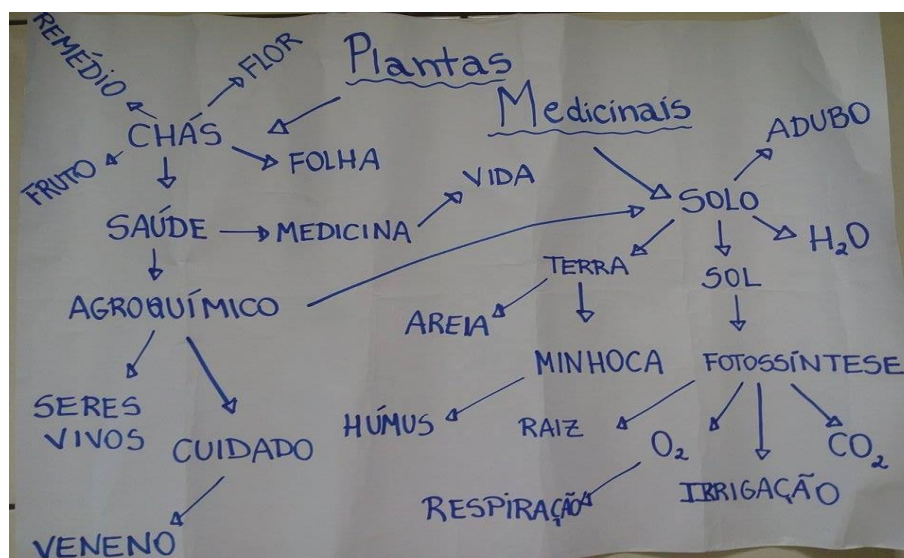 Plantas
Medicinais
REMÉDIO
FLOR
CHÁS
FRUTO
FOLHA
SAÚDE
MEDICINA
VIDA
AGROQUÍMICO
SERES
VIVOS
CUIDADO
VENENO
ADUBO
SOLO
H₂O
TERRA
SOL
AREIA
MINHOCA
FOTOSSÍNTESE
HÚMUS
RAIZ
O₂
CO₂
IRRIGAÇÃO
RESPIRAÇÃO